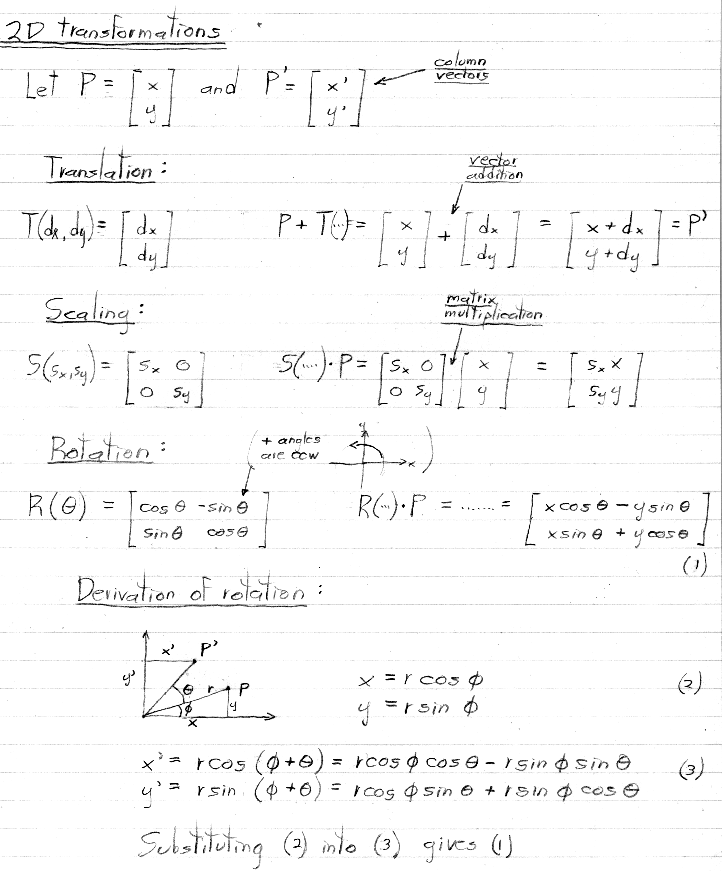 2D transformations
Let P = [x y] and P' = [x' y'] column vectors
Translation:
vector addition
T(dx, dy) = [dx dy] P + T(...) = [x y] + [dx dy] = [x + dx y + dy] = P'
Scaling:
matrix multiplication
S(sx, sy) = [sx 0 0 sy] S(...)·P = [sx 0 0 sy] [x y] = [sx x sy y]
Rotation:
( + angles are ccw y x )
R(θ) = [cosθ -sinθ sinθ cosθ] R(...)·P = ....... = [x cosθ - y sinθ x sinθ + y cosθ]
(1)
Derivation of rotation:
x' P'
y' θ r P
φ y
x
x = r cos φ (2)
y = r sin φ
x' = r cos (φ+θ) = r cos φ cos θ - r sin φ sin θ (3)
y' = r sin (φ+θ) = r cos φ sin θ + r sin φ cos θ
Substituting (2) into (3) gives (1)